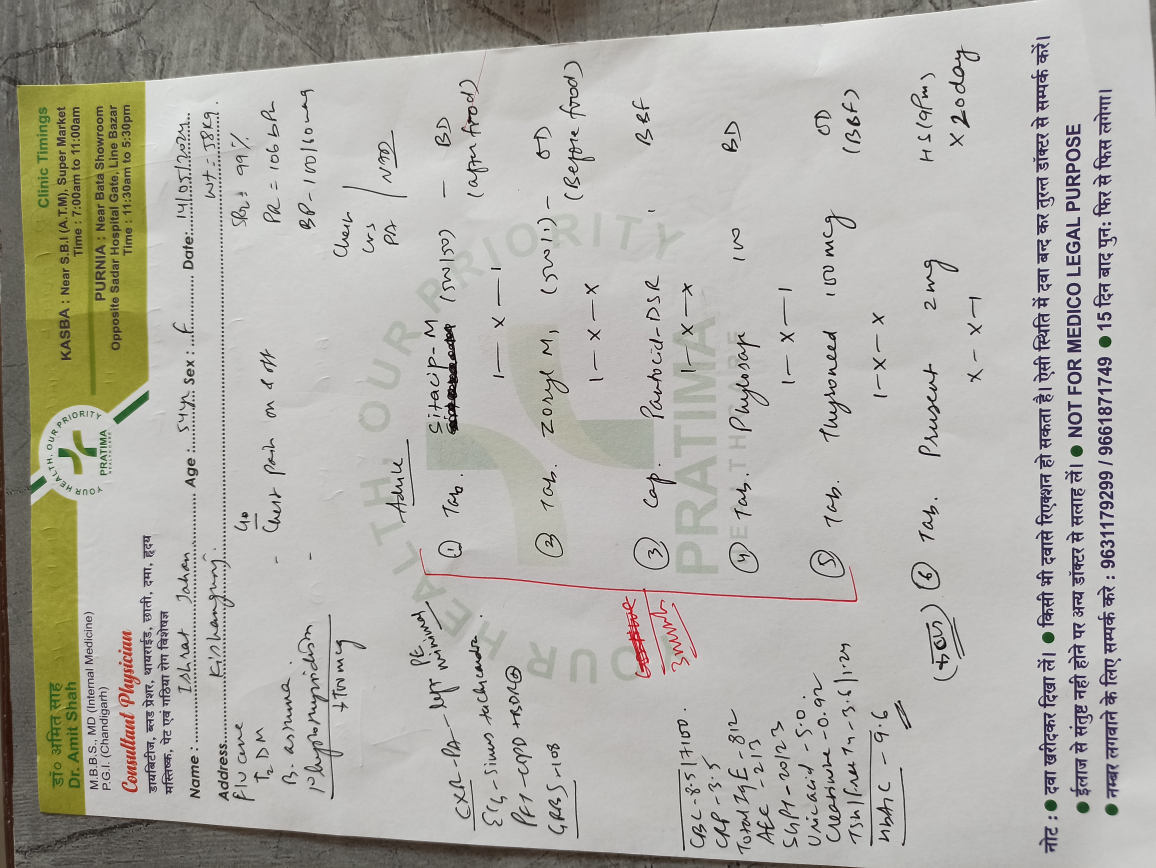 डॉ० अमित साह
Dr. Amit Shah
M.B.B.S., MD (Internal Medicine)
P.G.I. (Chandigarh)
Consultant Physician
डायबिटीज, ब्लड प्रेशर, थायराईड, छाती, दमा, हृदय
मस्तिष्क, पेट एवं गठिया रोग विशेषज्ञ
YOUR HEALTH, OUR PRIORITY
PRATIMA
Clinic Timings
KASBA : Near S.B.I (A.T.M), Super Market
Time : 7:00am to 11:00am
PURNIA : Near Bata Showroom
Opposite Sadar Hospital Gate, Line Bazar
Time : 11:30am to 5:30pm
Name : Ishrat Jahan Age : 54yr Sex : F Date: 14/05/2024
Address. Kishanganj. Wt = 58kg.
F/U case
T2DM
B. asthma
1° hypothyroidism
c/o
- Chest pain on & off
SpO2 99%
PR = 106 bpm
BP - 100/60 mmHg
Chest
CVS
PA
NAD
CXR-PA - left PE minimal
ECG - Sinus tachycardia
PFT - COPD + BDR
GRBS - 108
CBC - 8.5/7100.
CRP - 3.5
Total IgE - 812
AEC - 213
SGPT - 20/23
Uric acid - 5.0.
Creatinine - 0.92
TSH/free T4 - 3.6/1.24
HbA1C - 9.6
Advice
① Tab. Sitacip-M (50/500) - BD
1 - x - 1 (after food)
② Tab. Zoryl M1 (500/1) - OD
1 - x - x (Before food)
③ Cap. Pantocid-DSR BBF
1 - x - x
④ Tab. Phylosap 100 BD
1 - x - 1
⑤ Tab. Thyroneed 100 mcg OD
1 - x - x (BBF)
⑥ Tab. Prusent 2mg HS (9 Pm)
x - x - 1 x 20 day
3 month
YOUR HEALTH, OUR PRIORITY
PRATIMA
नोट : ● दवा खरीदकर दिखा लें। ● किसी भी दवासे रिएक्शन हो सकता है। ऐसी स्थिति में दवा बन्द कर तुरन्त डॉक्टर से सम्पर्क करें।
● ईलाज से संतुष्ट नही होने पर अन्य डॉक्टर से सलाह लें। ● NOT FOR MEDICO LEGAL PURPOSE
● नम्बर लगवाने के लिए सम्पर्क करे : 9631179299 / 9661871749 ● 15 दिन बाद पुन: फिर से फिस लगेगा।